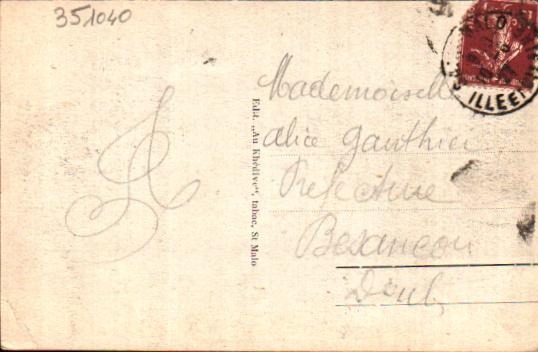 351040
Edit. „Au Khédive", tabac, St Malo
Mademoiselle
alice Gauthier
Prefecture
Besançon
Doubs
MALO
ILLE ET